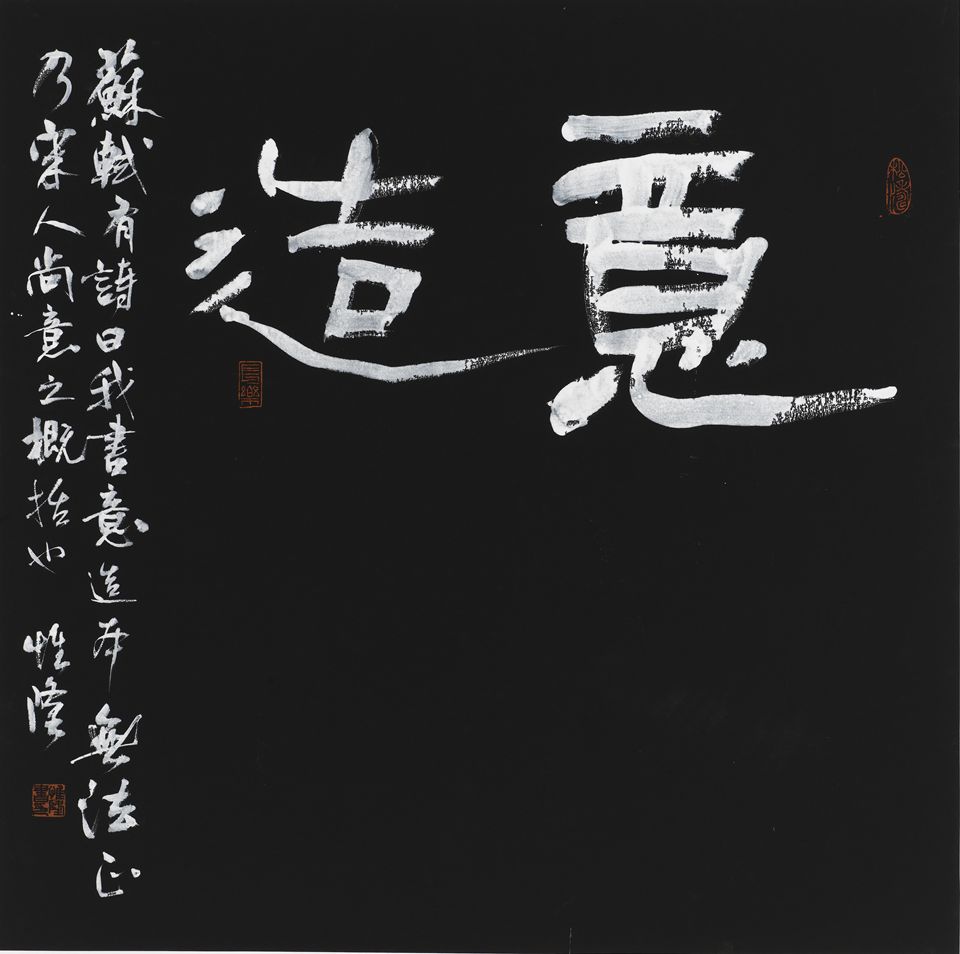 意造
蘇軾有詩曰我書意造本無法正
乃宋人尚意之概括也 惟隆